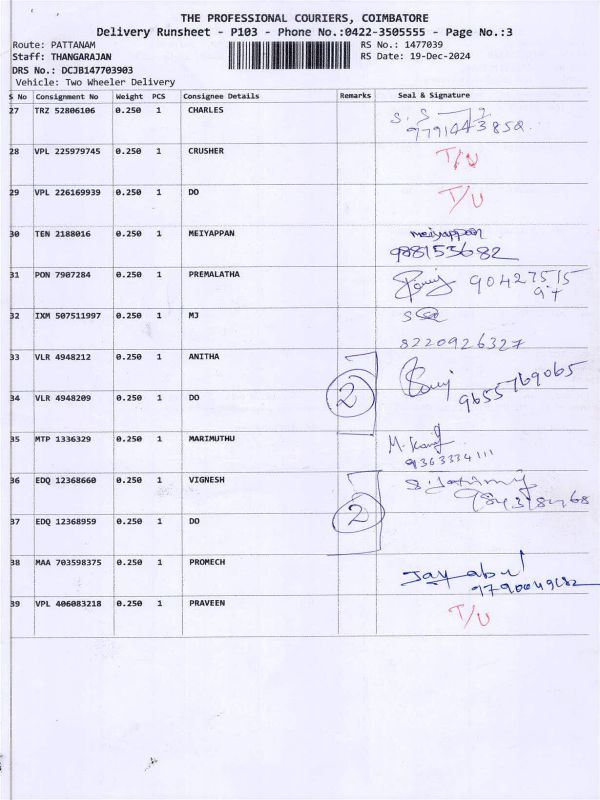 THE PROFESSIONAL COURIERS, COIMBATORE
Delivery Runsheet - P103 - Phone No.:0422-3505555 - Page No.:3
Route: PATTANAM RS No.: 1477039
Staff: THANGARAJAN RS Date: 19-Dec-2024
DRS No.: DCJB147703903
Vehicle: Two Wheeler Delivery
S No Consignment No Weight PCS Consignee Details Remarks Seal & Signature
27 TRZ 52806106 0.250 1 CHARLES
28 VPL 225979745 0.250 1 CRUSHER T/U
29 VPL 226169939 0.250 1 DO T/U
30 TEN 2188016 0.250 1 MEIYAPPAN meiyappan
9881553682
31 PON 7907284 0.250 1 PREMALATHA 90427515
97
32 IXM 507511997 0.250 1 MJ
8220926327
33 VLR 4948212 0.250 1 ANITHA
2 9655769065
34 VLR 4948209 0.250 1 DO
35 MTP 1336329 0.250 1 MARIMUTHU
9363334111
36 EDQ 12368660 0.250 1 VIGNESH
2
37 EDQ 12368959 0.250 1 DO
38 MAA 703598375 0.250 1 PROMECH
39 VPL 406083218 0.250 1 PRAVEEN T/U